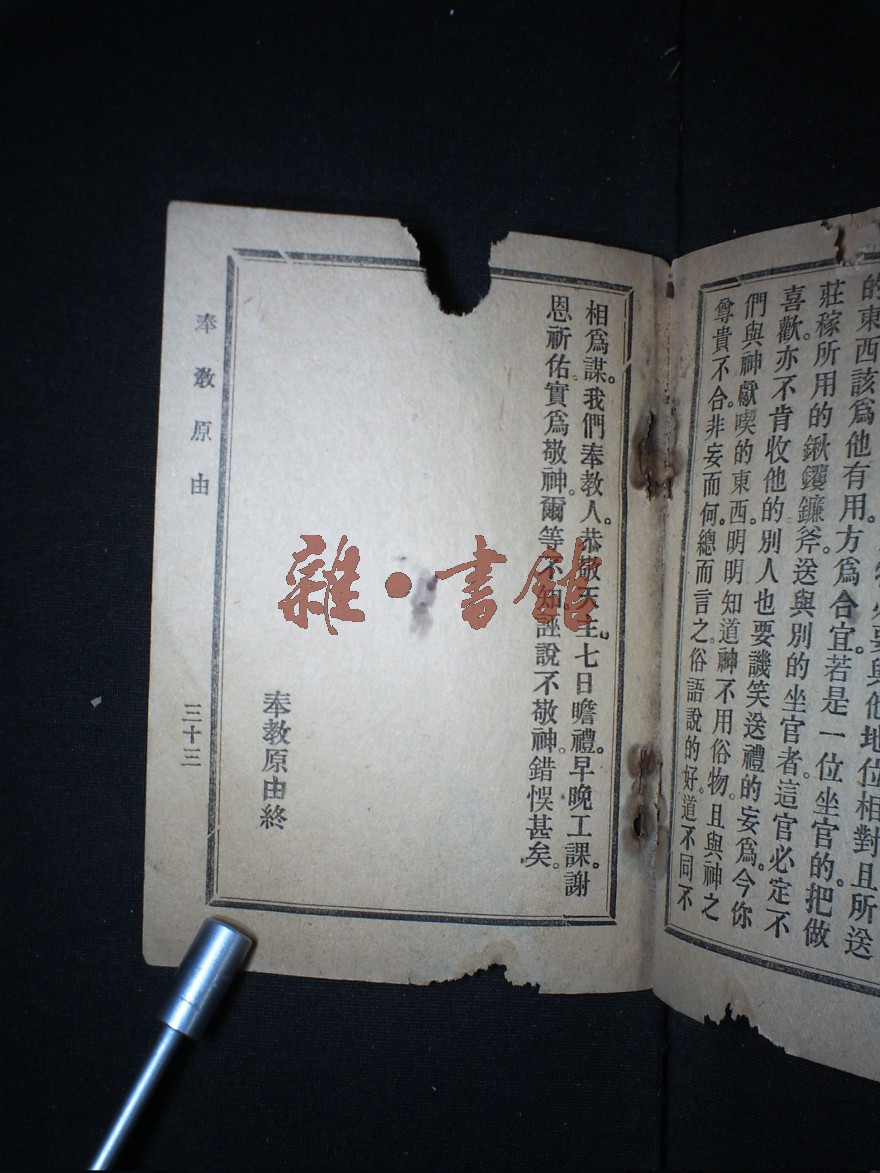 的東西該爲他有用方爲合宜。
要與他地位相對且所送
莊稼所用的鍬钁鐮斧。送與別的坐官者。這官必定不
若是一位坐官的把做
喜歡。亦不肯收他的別人也要譏笑送禮的妄爲。今你
們與神獻喫的東西。明明知道神不用俗物。且與神之
尊貴不合。非妄而何。總而言之。俗語說的好。道不同不
相爲謀。我們奉教人。恭敬天主。七日瞻禮。早晚工課。謝
恩祈佑。實爲敬神。爾等不知。誣說不敬神。錯悞甚矣。
奉教原由終
奉教原由
三十三
雜·書館